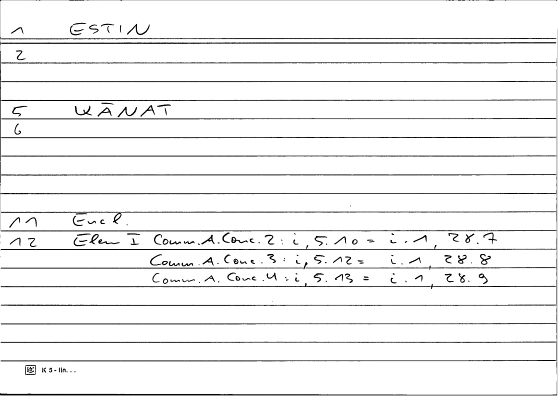 1 ESTIN
2
5 KĀNAT
6
11 Eucl.
12 Elem I Comm.A.Conc.2: i, 5.10 = i.1, 28.7
Comm.A.Conc.3: i, 5.12 = i.1, 28.8
Comm.A.Conc.4: i, 5.13 = i.1, 28.9
K 5 - lin. . .